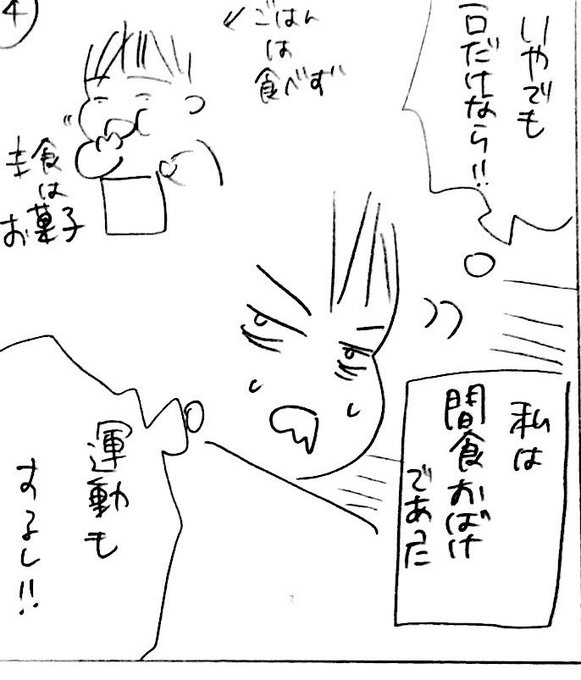 いやでも
一口だけなら!!
私は
間食おばけ
であった
ごはん
は
食べず
主食
は
お菓子
運動も
するし!!
4